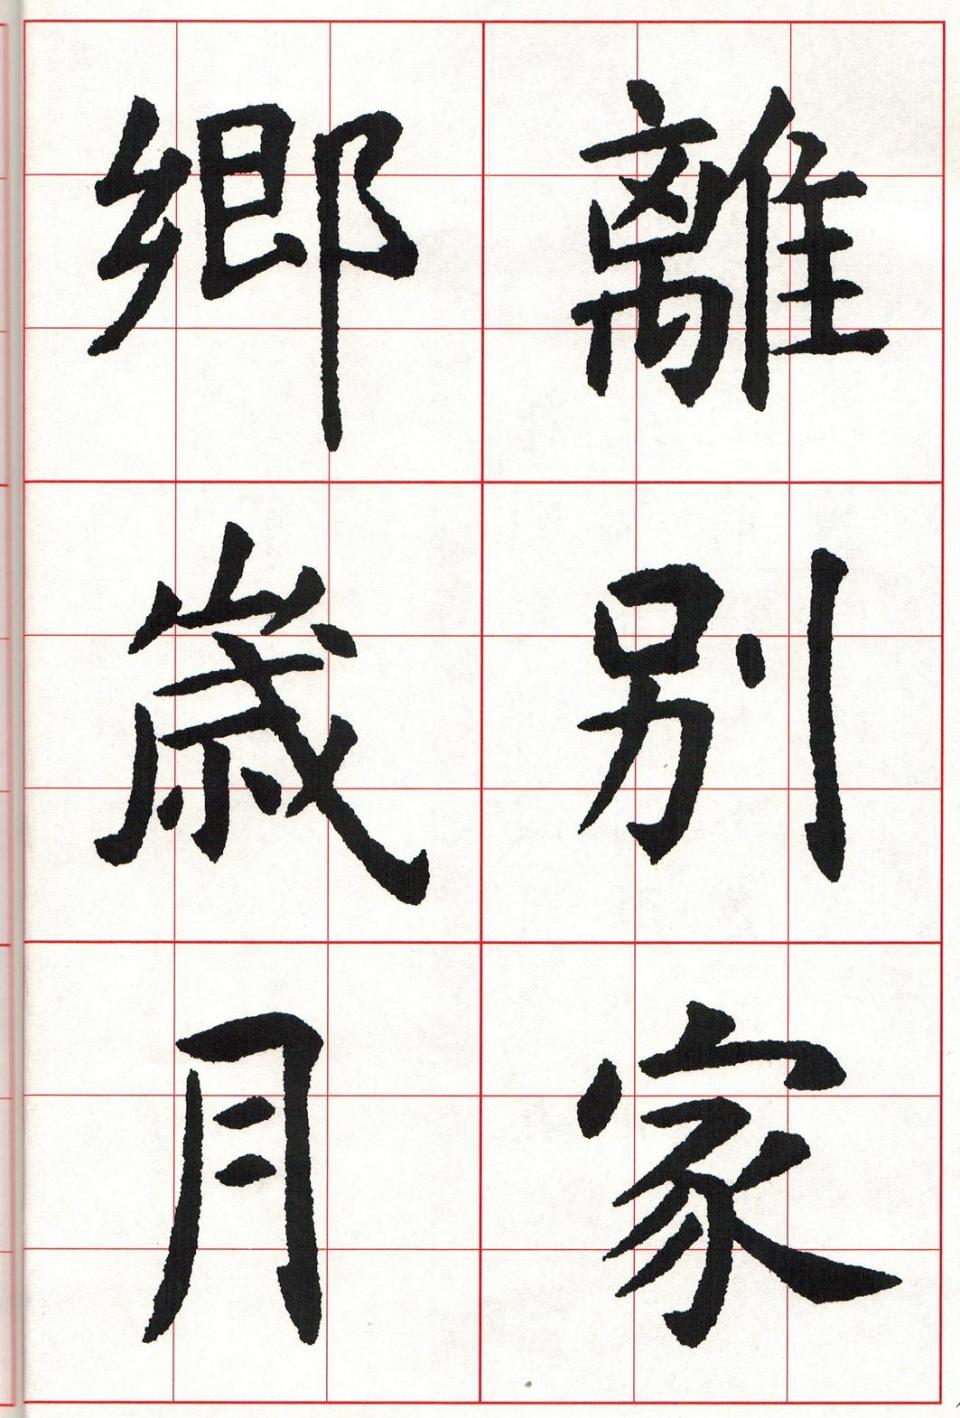 離別家
鄉歲月